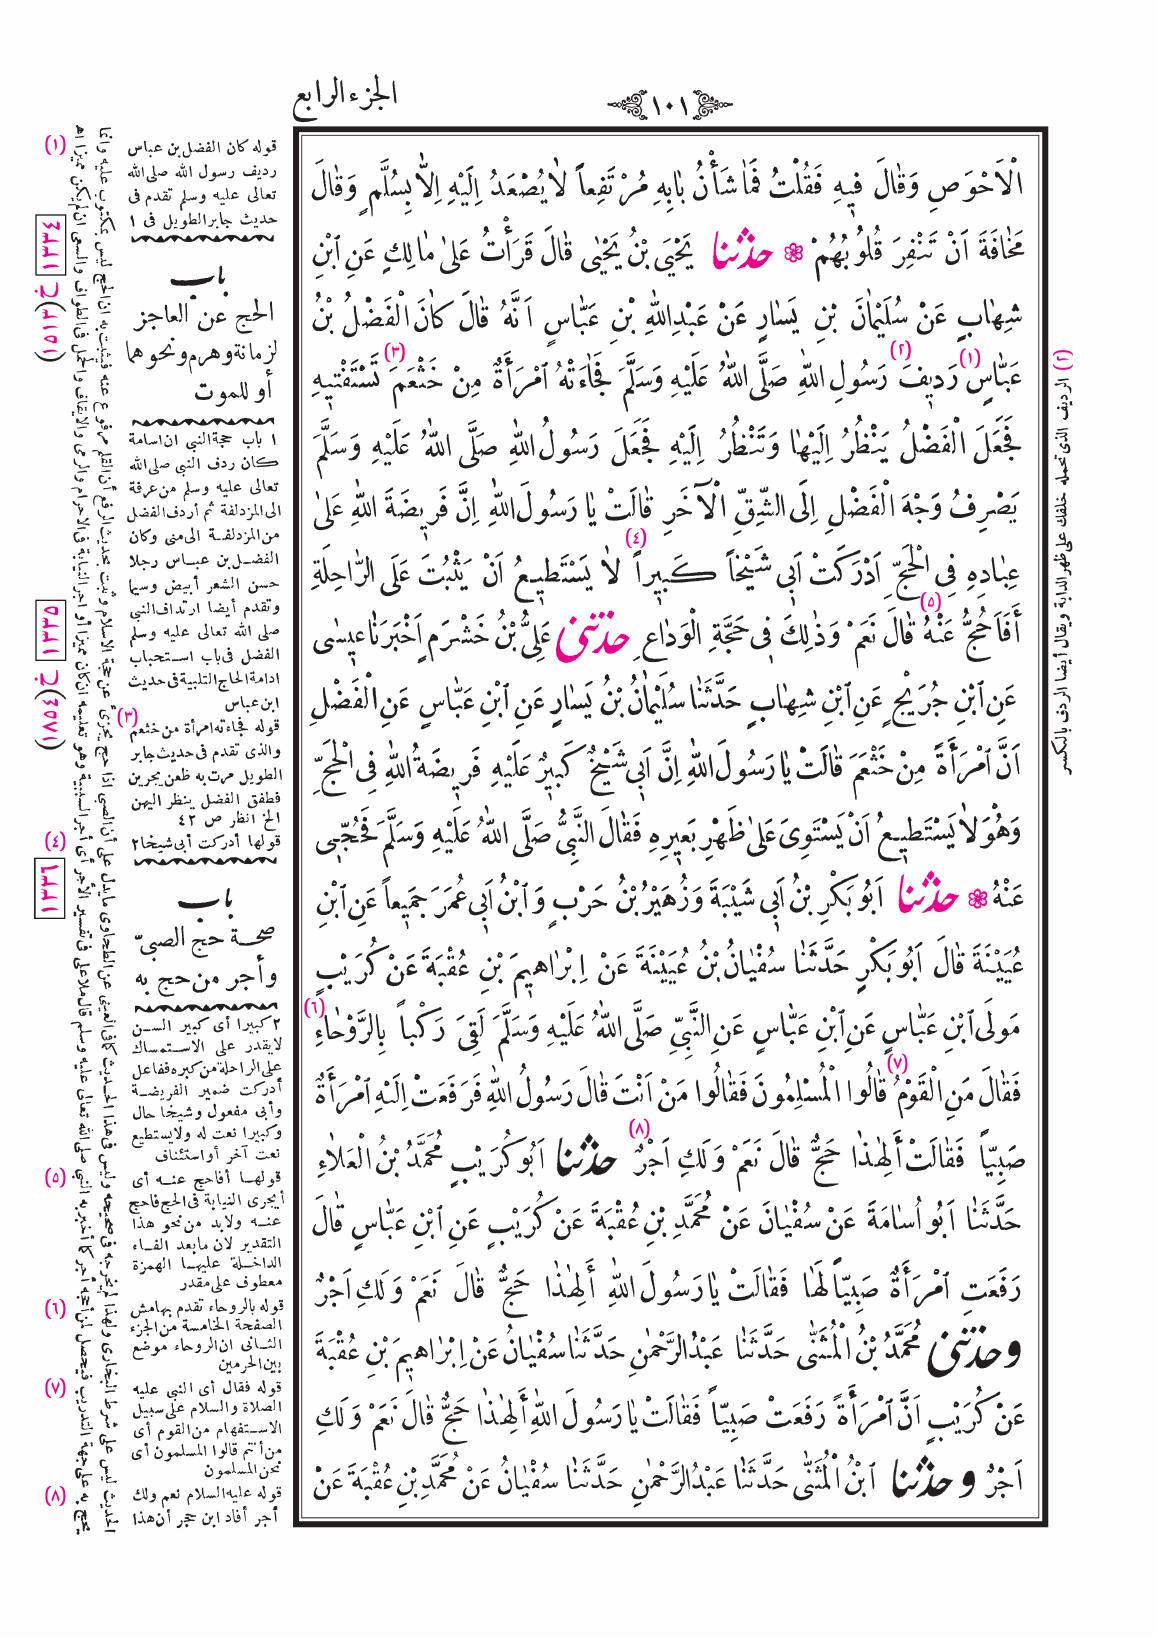 الجزء الرابع
١٠١
الْاَحْوَصِ وَقَالَ فِيهِ فَقُلْتُ فَمَا شَأْنُ بَابِهِ مُرْتَفِعاً لَا يُصْعَدُ اِلَيْهِ اِلَّا بِسُلَّمٍ وَقَالَ
مَخَافَةَ اَنْ تَنْفِرَ قُلُوبُهُمْ ❁ حدثنا يَحْيَى بْنُ يَحْيٰى قَالَ قَرَأْتُ عَلىٰ مَالِكٍ عَنِ ابْنِ
شِهَابٍ عَنْ سُلَيْمَانَ بْنِ يَسَارٍ عَنْ عَبْدِاللهِ بْنِ عَبَّاسٍ اَنَّهُ قَالَ كَانَ الْفَضْلُ بْنُ
عَبَّاسٍ (١) رَدِيفَ (٢) رَسُولِ اللهِ صَلَّى اللهُ عَلَيْهِ وَسَلَّمَ فَجَاءَتْهُ امْرَأَةٌ مِنْ خَثْعَمَ (٣) تَسْتَفْتِيهِ
فَجَعَلَ الْفَضْلُ يَنْظُرُ اِلَيْهَا وَتَنْظُرُ اِلَيْهِ فَجَعَلَ رَسُولُ اللهِ صَلَّى اللهُ عَلَيْهِ وَسَلَّمَ
يَصْرِفُ وَجْهَ الْفَضْلِ اِلَى الشِّقِّ الْآخَرِ قَالَتْ يَا رَسُولَ اللهِ اِنَّ فَرِيضَةَ اللهِ عَلىٰ
عِبَادِهِ فِى الْحَجِّ اَدْرَكَتْ اَبِى شَيْخاً كَبِيراً (٤) لَا يَسْتَطِيعُ اَنْ يَثْبُتَ عَلَى الرَّاحِلَةِ
أَفَاَحُجُّ عَنْهُ (٥) قَالَ نَعَمْ وَذٰلِكَ فِى حَجَّةِ الْوَدَاعِ حدثنى عَلِىُّ بْنُ خَشْرَمٍ اَخْبَرَنَا عِيسٰى
عَنِ ابْنِ جُرَيْجٍ عَنِ ابْنِ شِهَابٍ حَدَّثَنَا سُلَيْمَانُ بْنُ يَسَارٍ عَنِ ابْنِ عَبَّاسٍ عَنِ الْفَضْلِ
اَنَّ امْرَأَةً مِنْ خَثْعَمَ قَالَتْ يَا رَسُولَ اللهِ اِنَّ اَبِى شَيْخٌ كَبِيرٌ عَلَيْهِ فَرِيضَةُ اللهِ فِى الْحَجِّ
وَهُوَ لَا يَسْتَطِيعُ اَنْ يَسْتَوِىَ عَلىٰ ظَهْرِ بَعِيرِهِ فَقَالَ النَّبِىُّ صَلَّى اللهُ عَلَيْهِ وَسَلَّمَ فَحُجِّى
عَنْهُ ❁ حدثنا اَبُو بَكْرِ بْنُ اَبِى شَيْبَةَ وَزُهَيْرُ بْنُ حَرْبٍ وَابْنُ اَبِى عُمَرَ جَمِيعاً عَنِ ابْنِ
عُيَيْنَةَ قَالَ اَبُو بَكْرٍ حَدَّثَنَا سُفْيَانُ بْنُ عُيَيْنَةَ عَنْ اِبْرَاهِيمَ بْنِ عُقْبَةَ عَنْ كُرَيْبٍ
مَوْلَى ابْنِ عَبَّاسٍ عَنِ ابْنِ عَبَّاسٍ عَنِ النَّبِىِّ صَلَّى اللهُ عَلَيْهِ وَسَلَّمَ لَقِىَ رَكْباً بِالرَّوْحَاءِ (٦)
فَقَالَ مَنِ الْقَوْمُ (٧) قَالُوا الْمُسْلِمُونَ فَقَالُوا مَنْ اَنْتَ قَالَ رَسُولُ اللهِ فَرَفَعَتْ اِلَيْهِ امْرَأَةٌ
صَبِيّاً فَقَالَتْ أَلِهٰذَا حَجٌّ قَالَ نَعَمْ وَلَكِ اَجْرٌ (٨) حدثنا اَبُو كُرَيْبٍ مُحَمَّدُ بْنُ الْعَلَاءِ
حَدَّثَنَا اَبُو اُسَامَةَ عَنْ سُفْيَانَ عَنْ مُحَمَّدِ بْنِ عُقْبَةَ عَنْ كُرَيْبٍ عَنِ ابْنِ عَبَّاسٍ قَالَ
رَفَعَتِ امْرَأَةٌ صَبِيّاً لَهَا فَقَالَتْ يَا رَسُولَ اللهِ أَلِهٰذَا حَجٌّ قَالَ نَعَمْ وَلَكِ اَجْرٌ
وحدثنى مُحَمَّدُ بْنُ الْمُثَنّٰى حَدَّثَنَا عَبْدُالرَّحْمٰنِ حَدَّثَنَا سُفْيَانُ عَنْ اِبْرَاهِيمَ بْنِ عُقْبَةَ
عَنْ كُرَيْبٍ اَنَّ امْرَأَةً رَفَعَتْ صَبِيّاً فَقَالَتْ يَا رَسُولَ اللهِ أَلِهٰذَا حَجٌّ قَالَ نَعَمْ وَلَكِ
اَجْرٌ وحدثنا ابْنُ الْمُثَنّٰى حَدَّثَنَا عَبْدُالرَّحْمٰنِ حَدَّثَنَا سُفْيَانُ عَنْ مُحَمَّدِ بْنِ عُقْبَةَ عَنْ
(٢) الرديف الذى تحمله خلفك على ظهر الدابة ويقال أيضا الردف بالكسر
(١) قوله كان الفضل بن عباس
رديف رسول الله صلى الله
تعالى عليه وسلم تقدم فى
حديث جابر الطويل فى ١
باب
الحج عن العاجز
لزمانة وهرم ونحوهما
أو للموت
١ باب حجة النبى ان اسامة
كان ردف النبى صلى الله
تعالى عليه وسلم من عرفة
الى المزدلفة ثم أردف الفضل
من المزدلفة الى منى وكان
الفضل بن عباس رجلا
حسن الشعر أبيض وسيما
وتقدم أيضا ارتداف النبى
صلى الله تعالى عليه وسلم
الفضل فى باب استحباب
ادامة الحاج التلبية فى حديث
ابن عباس
(٣) قوله فجاءته امرأة من خثعم
والذى تقدم فى حديث جابر
الطويل مرت به ظعن يجرين
فطفق الفضل ينظر اليهن
الخ انظر ص ٤٢
(٤) قولها أدركت أبى شيخا ٢
باب
صحة حج الصبىّ
وأجر من حج به
٢ كبيرا أى كبير السن
لايقدر على الاستمساك
على الراحلة من كبره ففاعل
أدركت ضمير الفريضة
وأبى مفعول وشيخا حال
وكبيرا نعت له ولايستطيع
نعت آخر أو استئناف
(٥) قولها أفاحج عنه أى
أيجزى النيابة فى الحج فاحج
عنه ولابد من نحو هذا
التقدير لان مابعد الفاء
الداخلة عليها الهمزة
معطوف على مقدر
(٦) قوله بالروحاء تقدم بهامش
الصفحة الخامسة من الجزء
الثانى ان الروحاء موضع
بين الحرمين
(٧) قوله فقال أى النبى عليه
الصلاة والسلام على سبيل
الاستفهام من القوم أى
من أنتم قالوا المسلمون أى
نحن المسلمون
(٨) قوله عليه السلام نعم ولك
أجر أفاد ابن حجر أن هذا
١٣٣٤
ج (٣١٥١)
١٣٣٥
ج (٤٥٧١)
١٣٣٦